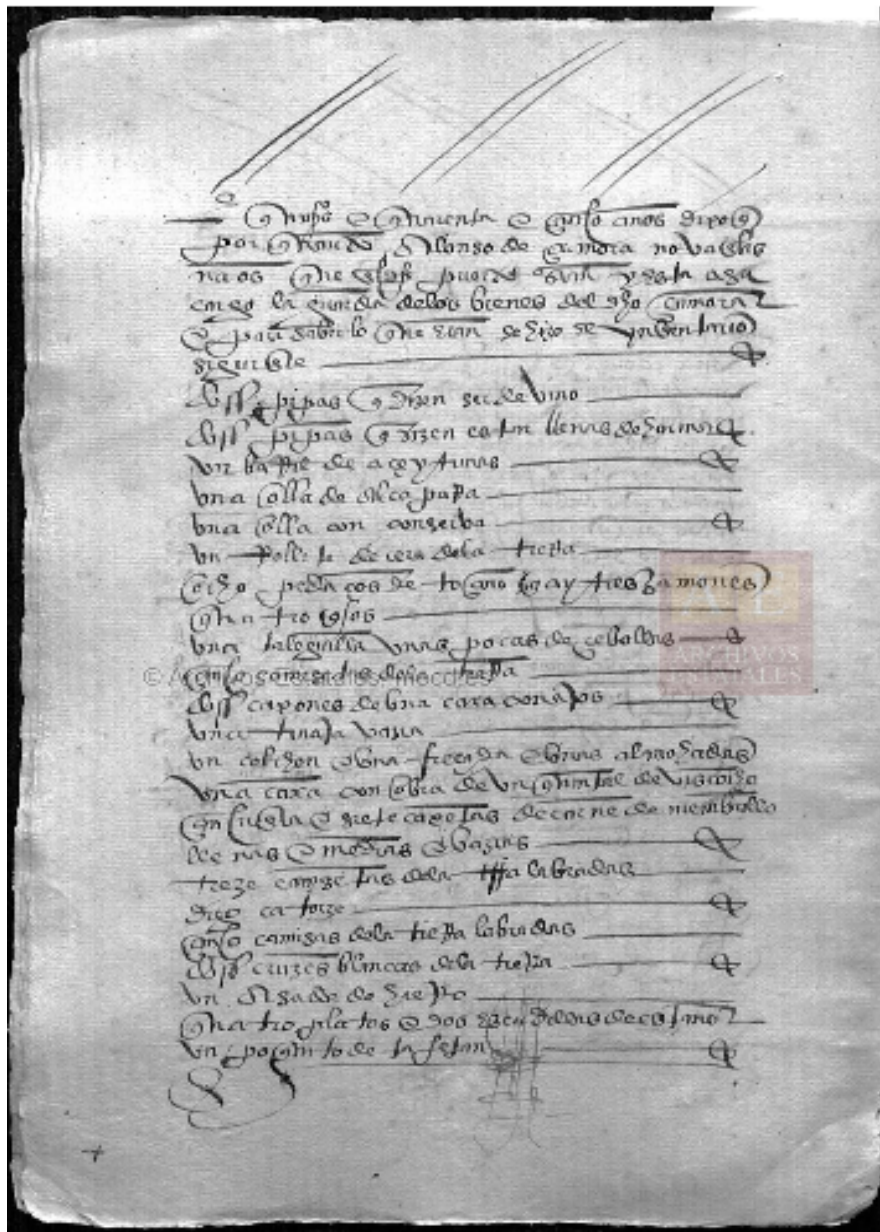 e quarenta e cinco años dixo q
por quanto Alonso de Çamora
cargo la guarda delos bienes del dho Çamora
e para saber lo que heran se hizo se ynbentario
siguiente
dos pipas q dizen ser de vino
dos pipas q dizen estar llenas de
vn barril de açeytunas
vna olla de alcaparra
vna olla con conserba
vn de cera dela tierra
ocho pedaços de toçino q ay tres xamones
quatro quesos
vna taleguilla vnas pocas de çebollas
çinco camisetas dela tierra
dos capones de vna caxa con ajos
vna tinaja vazia
vn colchon e vna freçada e vnas almohadas
vna caxa con obra de vn quintal de vizcocho
çinquenta e siete caxetas de carne de menbrillo
llenas e medias e bazias
treze camisetas dela trra labradas
digo catorze
çinco camisas dela tierra labradas
dos cruzes blancas dela tierra
vn de hierro
quatro platos e dos escudillas de estaño
vn poquito de tafetan
© Archivos Estatales, mecd.es
ARCHIVOS ESTATALES